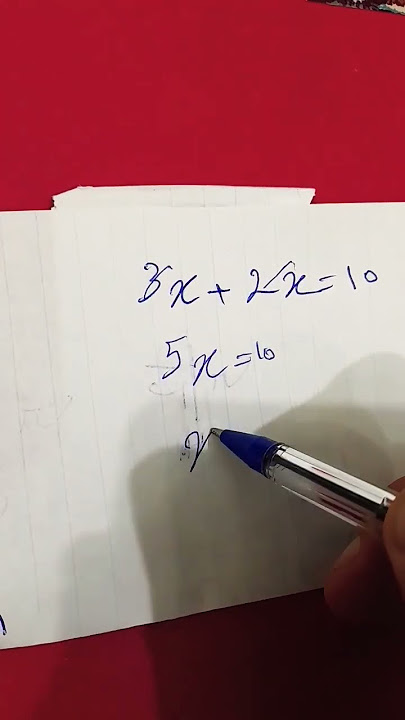 3x + 2x = 10
5x = 10
x